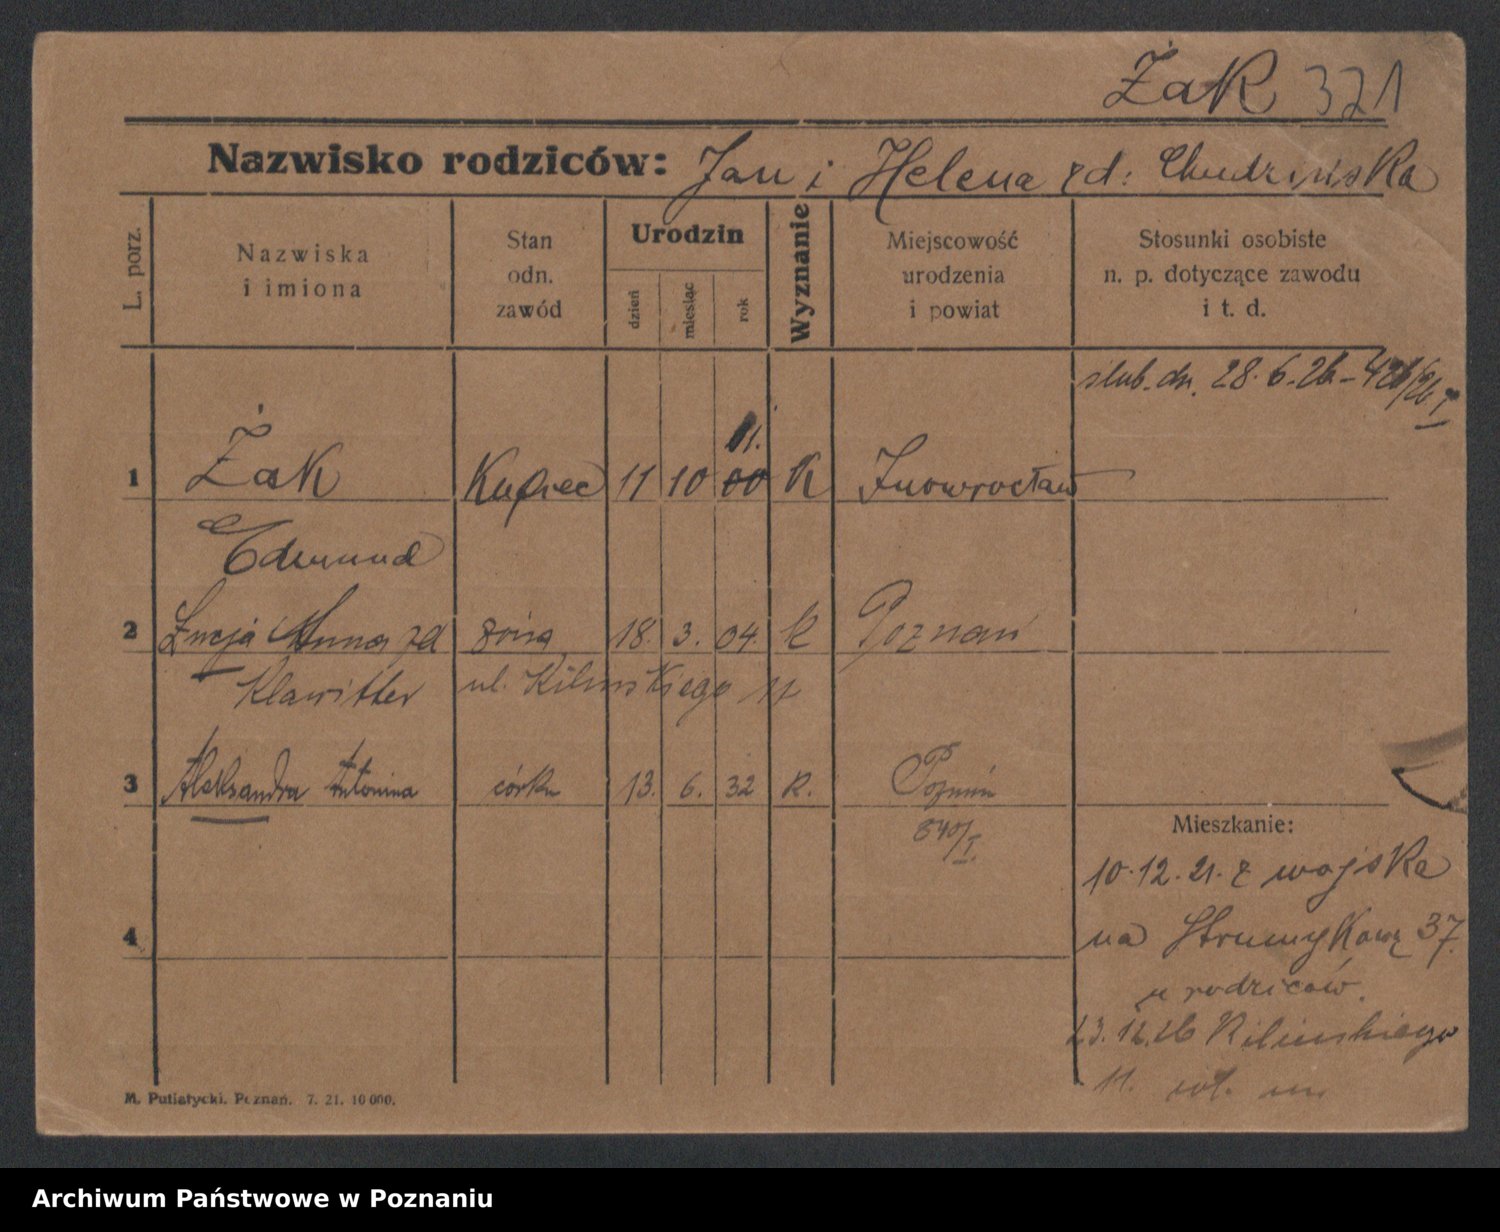 Żak 321
Nazwisko rodziców: Jan i Helena zd: Chudzińska
L. porz.
Nazwiska i imiona
Stan odn. zawód
Urodzin
dzień
miesiąc
rok
Wyznanie
Miejscowość urodzenia i powiat
Stosunki osobiste n. p. dotyczące zawodu i t. d.
ślub. dn. 28. 6. 26 -
1 Żak Kupiec 11 10 00 01. K Inowrocław
Edmund
2 Łucja Anna zd żona 18. 3. 04. k Poznań
Klawitter ul. Kilińskiego 11
3 Aleksandra Antonina córka 13. 6. 32 k. Poznań
840/I.
Mieszkanie:
10. 12. 21. z wojska
na Strumykową 37.
u rodziców.
23. 12. 26 Kilińskiego
11.
4
M. Putiatycki. Poznań. 7. 21. 10 000.
Archiwum Państwowe w Poznaniu